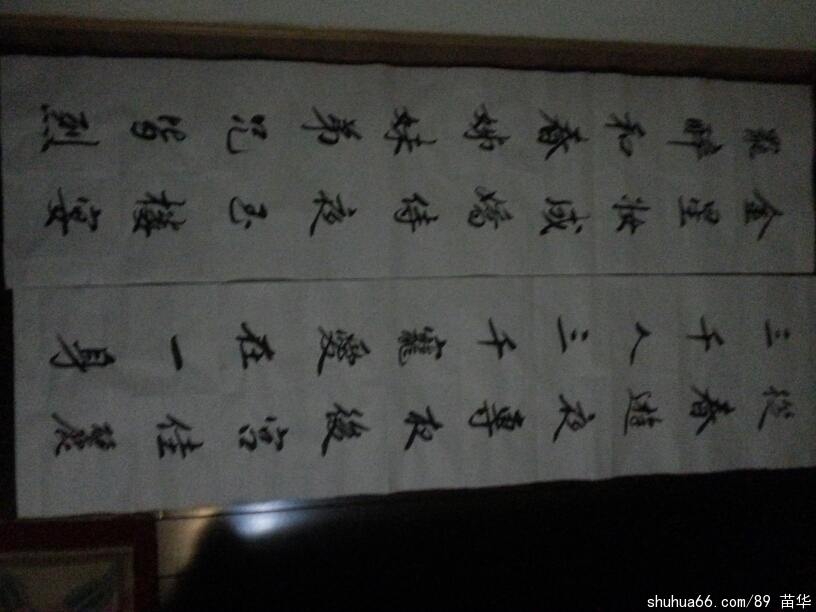 從春遊夜專夜後宮佳麗
三千人三千寵愛在一身
金屋妝成嬌侍夜玉樓宴
罷醉和春姊妹弟兄皆烈
shuhua66.com/89 苗华